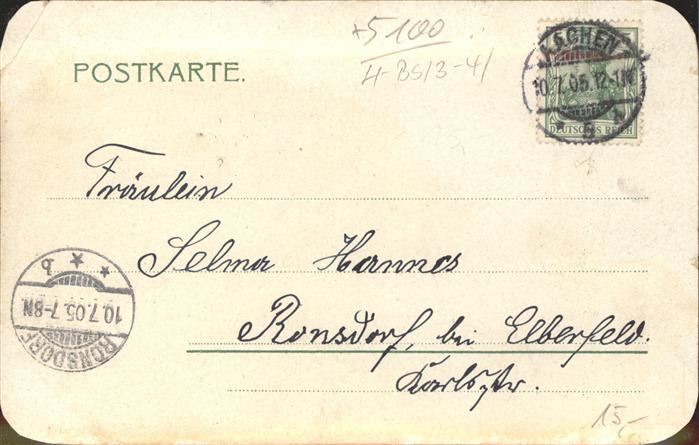 +5100
4-BS/3-4/
POSTKARTE.
AACHEN
10.7.05.12-1N
DEUTSCHES REICH
Fräulein
Selma Hannes
Ronsdorf, bei Elberfeld.
Karlstr.
RONSDORF
10.7.05.7-8N
b
15,-